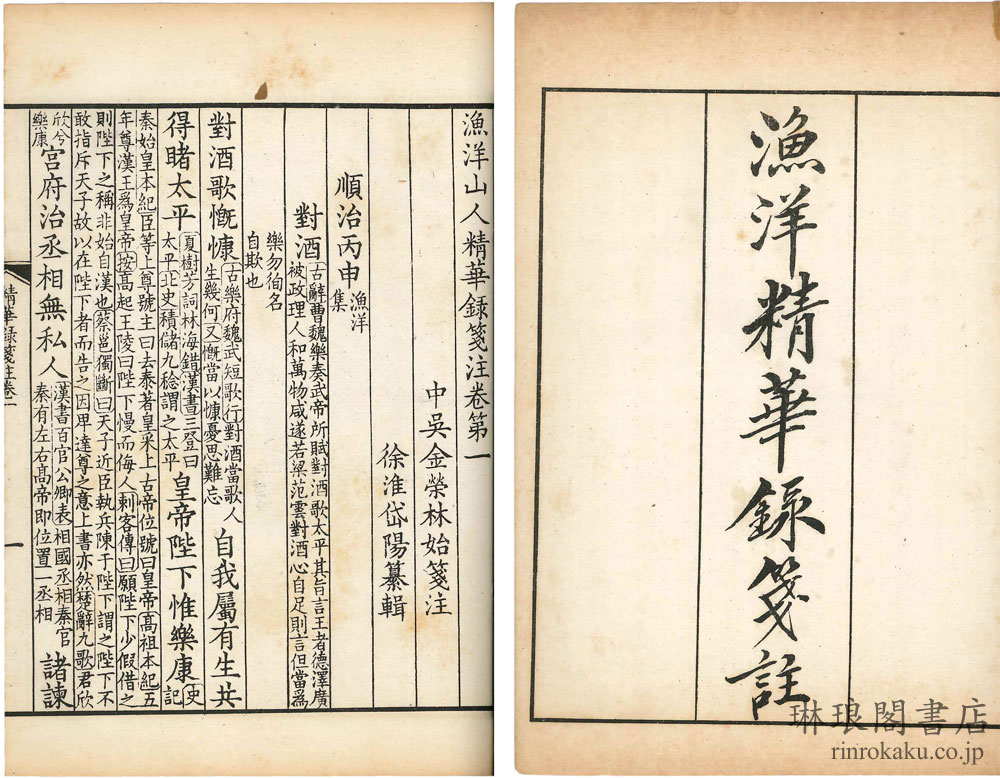 漁洋精華録箋註
漁洋山人精華録箋注卷第一
中吳金榮林始箋注
徐淮岱陽纂輯
順治丙申漁洋集
對酒古辭曹魏樂奏武帝所賦對酒歌太平其旨言王者德澤廣
被政理人和萬物咸遂若梁范雲對酒心自足則言但當爲
樂勿徇名
自欺也
對酒歌慨慷古樂府魏武短歌行對酒當歌人生幾何又慨當以慷憂思難忘自我屬有生共
得睹太平夏樹芳詞林海錯漢書三登曰太平北史積儲九稔謂之太平皇帝陛下惟樂康史記
秦始皇本紀臣等上尊號王曰去泰著皇采上古帝位號曰皇帝髙祖本紀五
年尊漢王爲皇帝按髙起王陵曰陛下慢而侮人刺客傳曰願陛下少假借之
則陛下之稱非始自漢也蔡邕獨斷曰天子近臣執兵陳于陛下謂之陛下不
敢指斥天子故以在陛下者而告之因卑達尊之意上書亦然楚辭九歌君欣
欣兮樂康宮府治丞相無私人漢書百官公卿表相國丞相秦官秦有左右髙帝即位置一丞相諸諫
精華録箋注卷一
一
琳琅閣書店
rinrokaku.co.jp